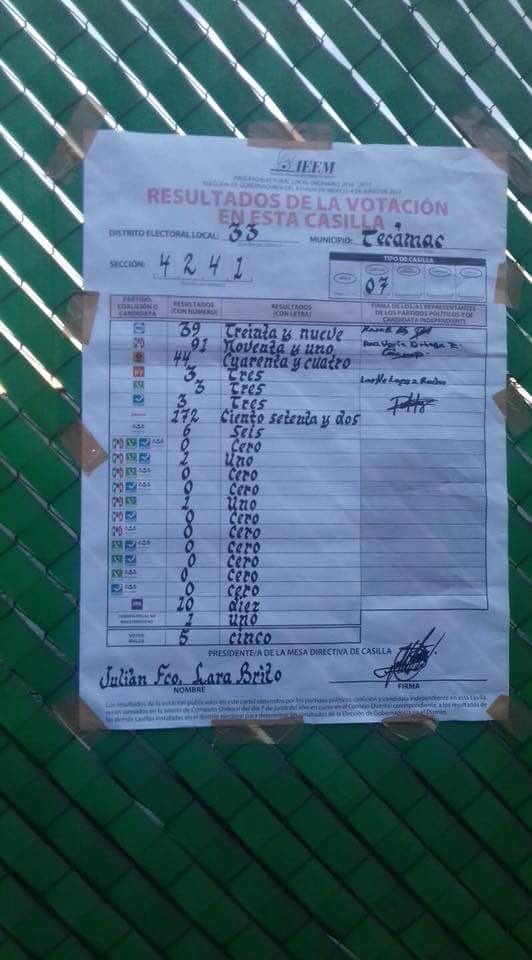 IEEM
PROCESO ELECTORAL LOCAL ORDINARIO 2016 - 2017
ELECCIÓN DE GOBERNADOR/A DEL ESTADO DE MÉXICO, 4 DE JUNIO DE 2017
RESULTADOS DE LA VOTACIÓN
EN ESTA CASILLA
DISTRITO ELECTORAL LOCAL: 33 MUNICIPIO: Tecámac
SECCIÓN: 4241 TIPO DE CASILLA
07
PARTIDO, COALICIÓN O CANDIDATA RESULTADOS (CON NÚMERO) RESULTADOS (CON LETRA) FIRMA DE LOS/AS REPRESENTANTES DE LOS PARTIDOS POLÍTICOS Y DE CANDIDATA INDEPENDIENTE
39 Treinta y nueve
91 Noventa y uno
44 Cuarenta y cuatro
PT 3 Tres
3 Tres
3 Tres
morena 172 Ciento setenta y dos
6 Seis
0 Cero
1 Uno
0 Cero
0 Cero
1 Uno
0 Cero
0 Cero
0 Cero
0 Cero
0 Cero
0 cero
10 diez
CANDIDATO/A NO REGISTRADO/A 1 uno
VOTOS NULOS 5 cinco
PRESIDENTE/A DE LA MESA DIRECTIVA DE CASILLA
Julián Fco. Lara Brito
NOMBRE FIRMA
Los resultados de la votación publicados en este cartel obtenidos por los partidos políticos, coalición y candidata independiente en esta casilla, serán sumados en la sesión de Cómputo Distrital del día 7 de junio del año en curso en el Consejo Distrital correspondiente, a los resultados de
las demás casillas instaladas en el distrito electoral para determinar los resultados de la Elección de Gobernador/a en el Distrito.